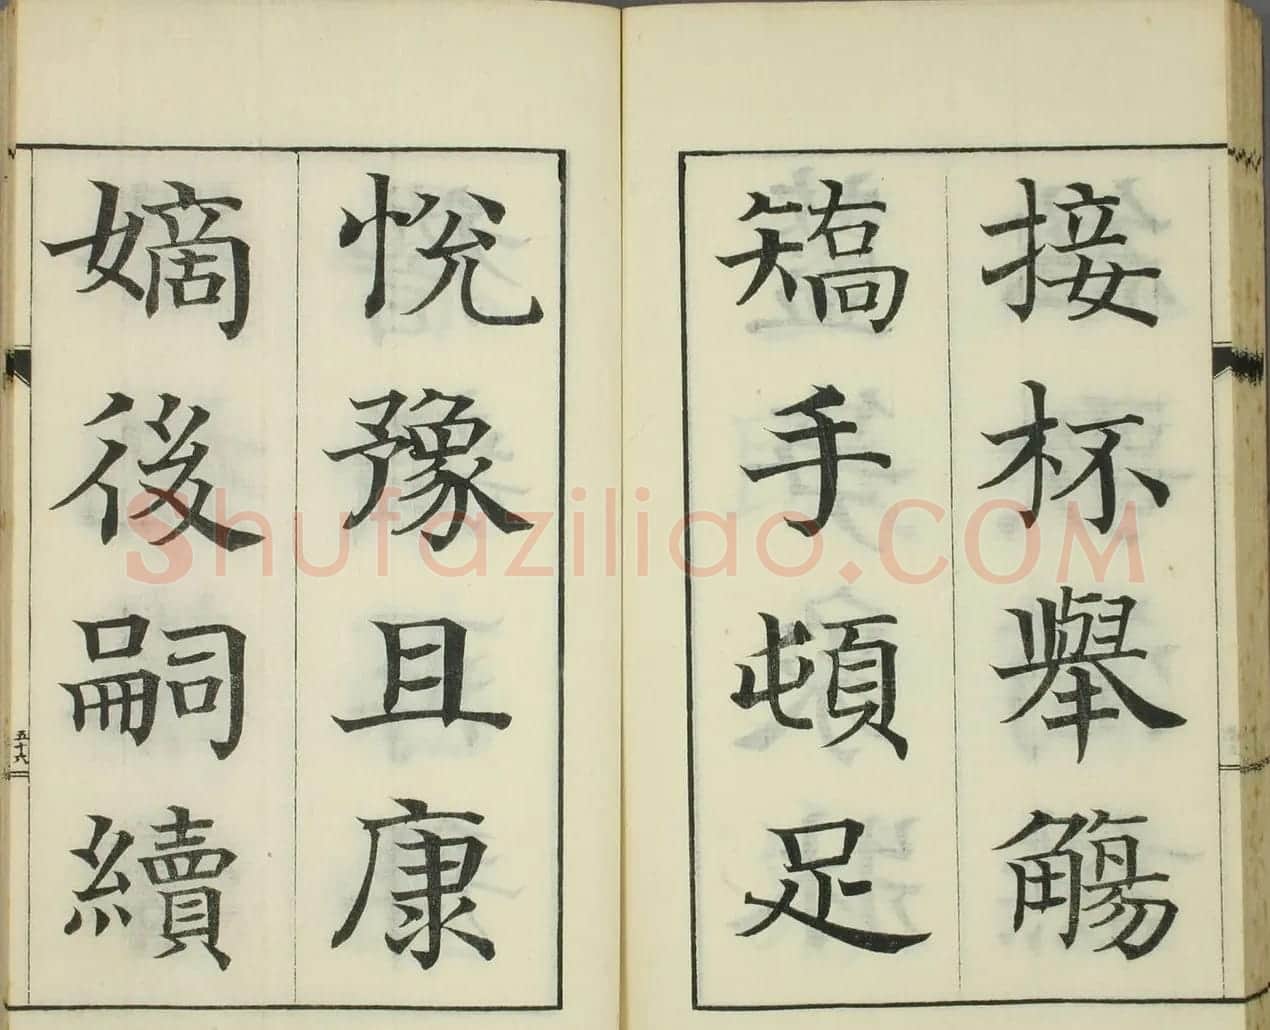 接杯舉觴
矯手頓足
悅豫且康
嫡後嗣續
五十六
Shufaziliao.COM